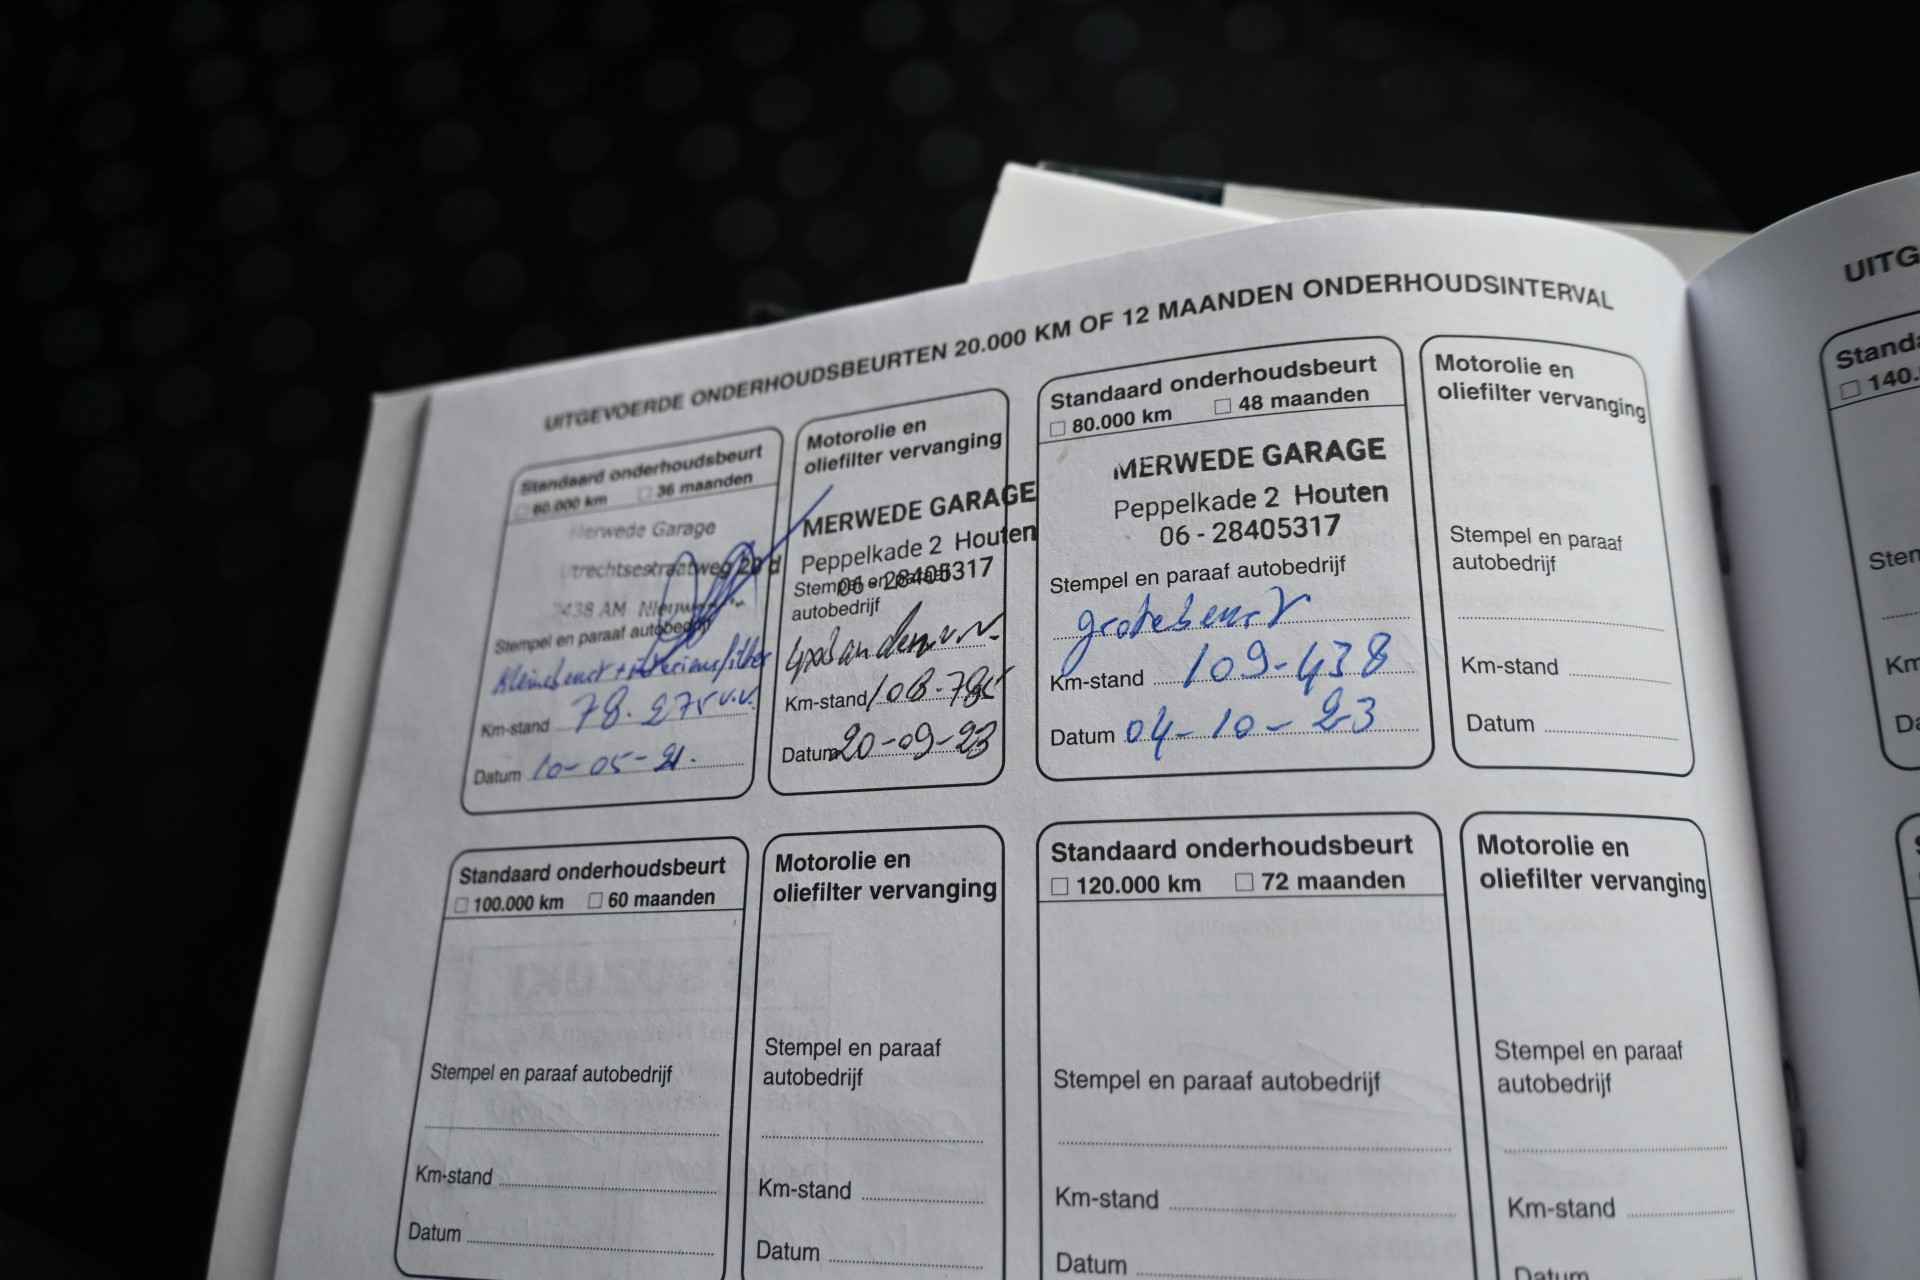 UITGEVOERDE ONDERHOUDSBEURTEN 20.000 KM OF 12 MAANDEN ONDERHOUDSINTERVAL
Standaard onderhoudsbeurt
60.000 km 36 maanden
Merwede Garage
Utrechtsestraatweg 20 d
3438 AM
Stempel en paraaf autobedrijf
Kleine beurt + interieurfilter
Km-stand 78.275 v.v.
Datum 10-05-21.
Motorolie en
oliefilter vervanging
MERWEDE GARAGE
Peppelkade 2 Houten
06 - 28405317
Stempel en paraaf
autobedrijf
4x banden v.v.
Km-stand 108.785
Datum 20-09-23
Standaard onderhoudsbeurt
80.000 km 48 maanden
MERWEDE GARAGE
Peppelkade 2 Houten
06 - 28405317
Stempel en paraaf autobedrijf
grote beurt
Km-stand 109-438
Datum 04-10-23
Motorolie en
oliefilter vervanging
Stempel en paraaf
autobedrijf
Km-stand
Datum
Standaard onderhoudsbeurt
100.000 km 60 maanden
Stempel en paraaf autobedrijf
Km-stand
Datum
Motorolie en
oliefilter vervanging
Stempel en paraaf
autobedrijf
Km-stand
Datum
Standaard onderhoudsbeurt
120.000 km 72 maanden
Stempel en paraaf autobedrijf
Km-stand
Datum
Motorolie en
oliefilter vervanging
Stempel en paraaf
autobedrijf
Km-stand
Datum
UITG
Standa
140.
Stem
Km
Da